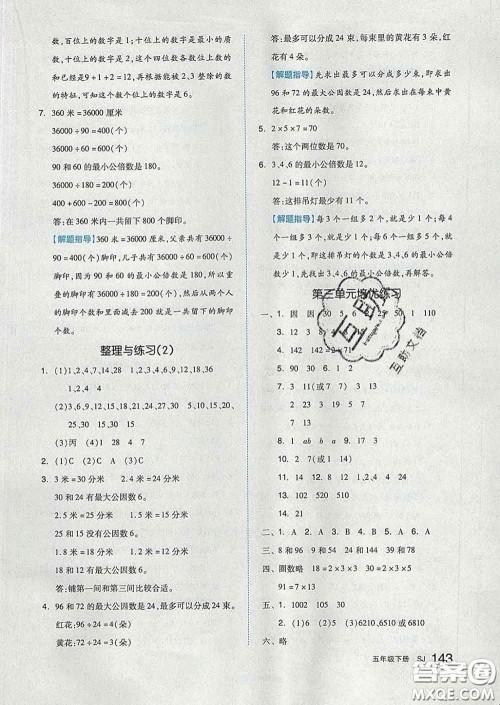 数,百位上的数字是1;十位上的数字是最小的质
数,十位上的数字是2,这个四位数各数位上的数
的和已经是9+1+2=12,再根据能被2,3整除的数
的特征,可知这个数个位上的数字是6。
7. 360米=36000厘米
36000÷90=400(个)
36000÷60=600(个)
90和60的最小公倍数是180。
36000÷180=200(个)
400+600-200=800(个)
答:在360米内一共留下800个脚印。
【解题指导】360米=36000厘米,父亲共有36000÷
90=400(个)脚印,小明共有36000÷60=600(个)
脚印,因为90和60的最小公倍数是180,所以脚印
重复了36000÷180=200(个),然后从两个人
的脚印个数和中减去200就是一共留下的脚印个
数。
整理与练习(2)
1. (1)1,2,4,7,14,28 1,2,3,4,6,9,12,18,36
1,2,4 4
(2)1,3,5,9,15,45 5,10,15,20,
25,30 15 15
(3)丙 11 4 7 15
2. (1)C (2)C A (3)C
3. 3米=30分米 2.4米=24分米
30和24有最大公因数6。
2.5米=25分米 1.5米=15分米
25和15没有公因数6。
3米=30分米 1.8米=18分米
30和18有最大公因数6。
答:铺第一间和第三间比较合适。
4. 96和72的最大公因数是24,最多可以分成24束。
红花:96÷24=4(朵)
黄花:72÷24=3(朵)
答:最多可以分成24束,每束里的黄花有3朵,红
花有4朵。
【解题指导】先求出最多可以分成多少束,即求出
96和72的最大公因数是24,然后求出在每束中黄
花和红花的朵数。
5. 2×5×7=70
答:这个两位数是70。
6. 3,4,6的最小公倍数是12。
12-1=11(个)
答:这排吊灯最少有11个。
【解题指导】每3个一组多2个,就是少1个;每
4个一组多3个,就是少1个;每6个一组多5个,
就是少1个,这排吊灯的总数是3,4,6的最小公倍
数少1。
第三单元培优练习
互助文档
一、1. 因 因
2. 30 90 102 990
3. 15 24 142
4. 102 990
6. 2 3 11(或7 7 13)
7. 30 8 17 18
8. 1 ab b a
9. 2 1
10. 9 13 11. 15
12. 2 8 13. 1,2,4 4 24
14. 21
二、1. A 2. C 3. B 4. A 5. A
三、8和96 9和54 90和15
四、圈数略 18=2×3×3 30=2×3×5
91=7×13
五、1. 1002 2. 65 3. 6510,6810或6210
六、略
五年级下册 SJ 143
答案圈
MXQE.COM